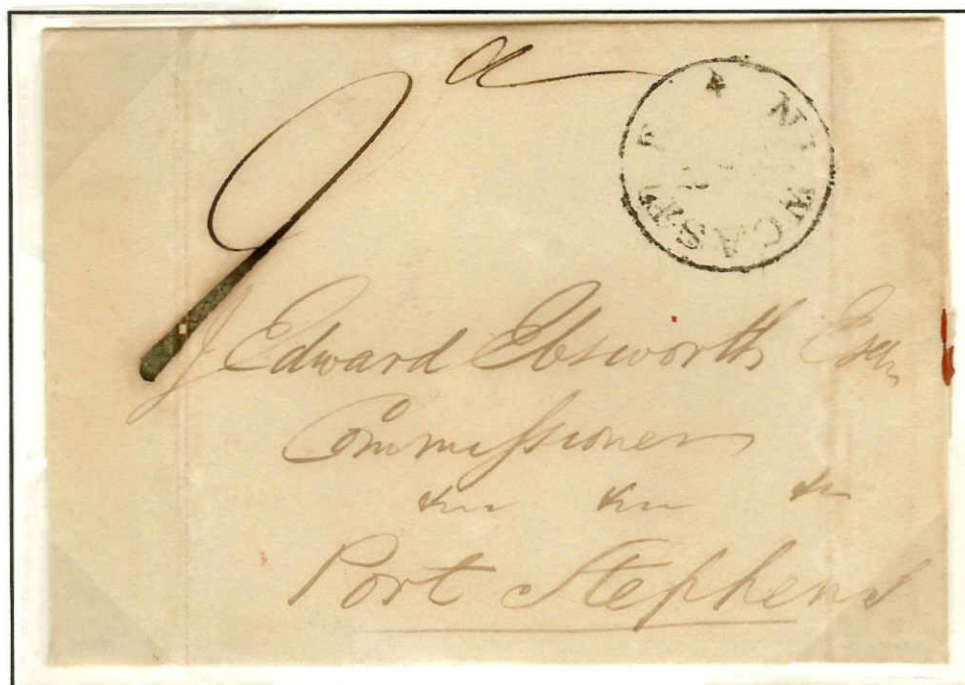 9d
NEWCASTLE
J Edward Ebsworth Esqr
Commissioner
&c &c &c
Port Stephens